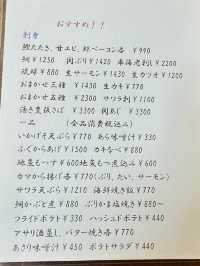 おすすめ！！
刺身
鰹たたき、甘エビ、紅ベーコン各 ¥990
¥1250 関ぶり¥1420 車海老刺し¥2200
琉球 ¥880 生サーモン¥1430 生カツオ ¥1200
おまかせ三種 ¥1430 生カキ¥770
おまかせ五種 ¥2300 サワラ刺¥1100
活き 抜さば ¥3300 関あじ ¥3300
一品 (全品消費税込み)
いかげそ天ぷら¥770 あら味噌汁¥330
ふぐからあげ¥1500 カキなべ¥880
地蛸もつす¥600地蛸もつ煮込み¥600
カマから揚げ各¥770(ぶり、たい、サーモン)
サワラ天ぷら¥1210 海鮮かき飯¥770
かぶと煮 ¥880 ぶりかま塩焼き ¥880～
フライドポテト¥330 ハッシュドポテト¥440
アサリ酒蒸し、バター焼き各¥770
あさり味噌汁 ¥450 ポテトサラダ ¥440